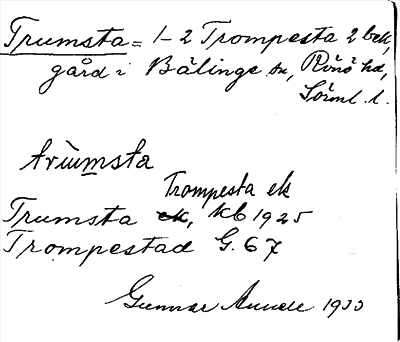 Trumsta = 1-2 Trompesta 2 bek,
gård i Bälinge sn, Rönö hd,
Sörml. l.
trùmsta
Trompesta ek
Trumsta ek, kb 1925
Trompestad G. 67
Gunnar 1933